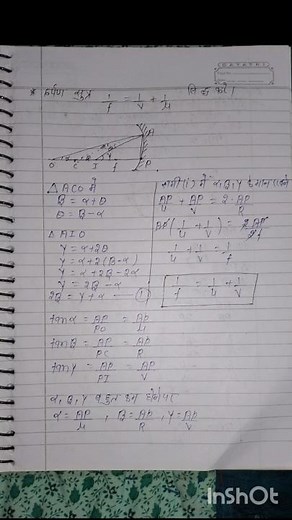 * दर्पण सूत्र 1/f = 1/v + 1/u सिद्ध करो।
△ ACO में
B = α+θ
θ = B-α
△ AIO
γ = α+2θ
γ = α+2(B-α)
γ = α+2B-2α
γ = 2B-α
2B = γ+α —— (1)
tanα = AP/PO = AP/u
tanB = AP/PC = AP/R
tanγ = AP/PI = AP/V
α, B, γ बहुत छोटे होने पर
α = AP/u , B = AP/R , γ = AP/V
समी (1) में α, B, γ के मान रखने
AP/u + AP/V = 2·AP/R
AP(1/u + 1/V) = 2AP/2f
1/u + 1/v = 1/f
1/f = 1/u + 1/v
InShot